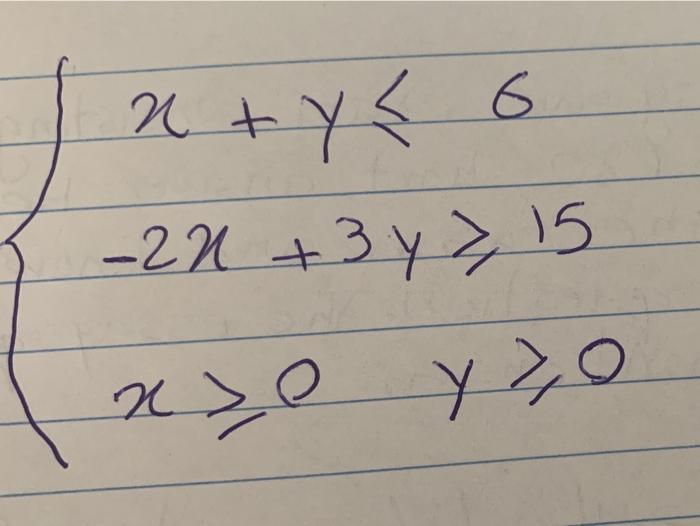 x + y ≤ 6
-2x + 3y ≥ 15
x ≥ 0 y ≥ 0